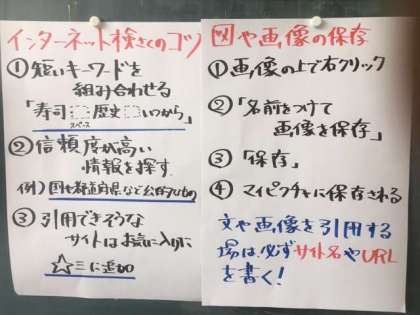 インターネット検さくのコツ
①短いキーワードを
組み合わせる
「寿司 歴史 いつから」
スペース
②信頼度が高い
情報を探す
例)国や都道府県など公的なもの
③引用できそうな
サイトはお気に入りに
☆三に追加
図や画像の保存
①画像の上で右クリック
②「名前をつけて
画像を保存」
③「保存」
④マイピクチャに保存される
文や画像を引用する
場は必ずサイト名やURL
を書く!